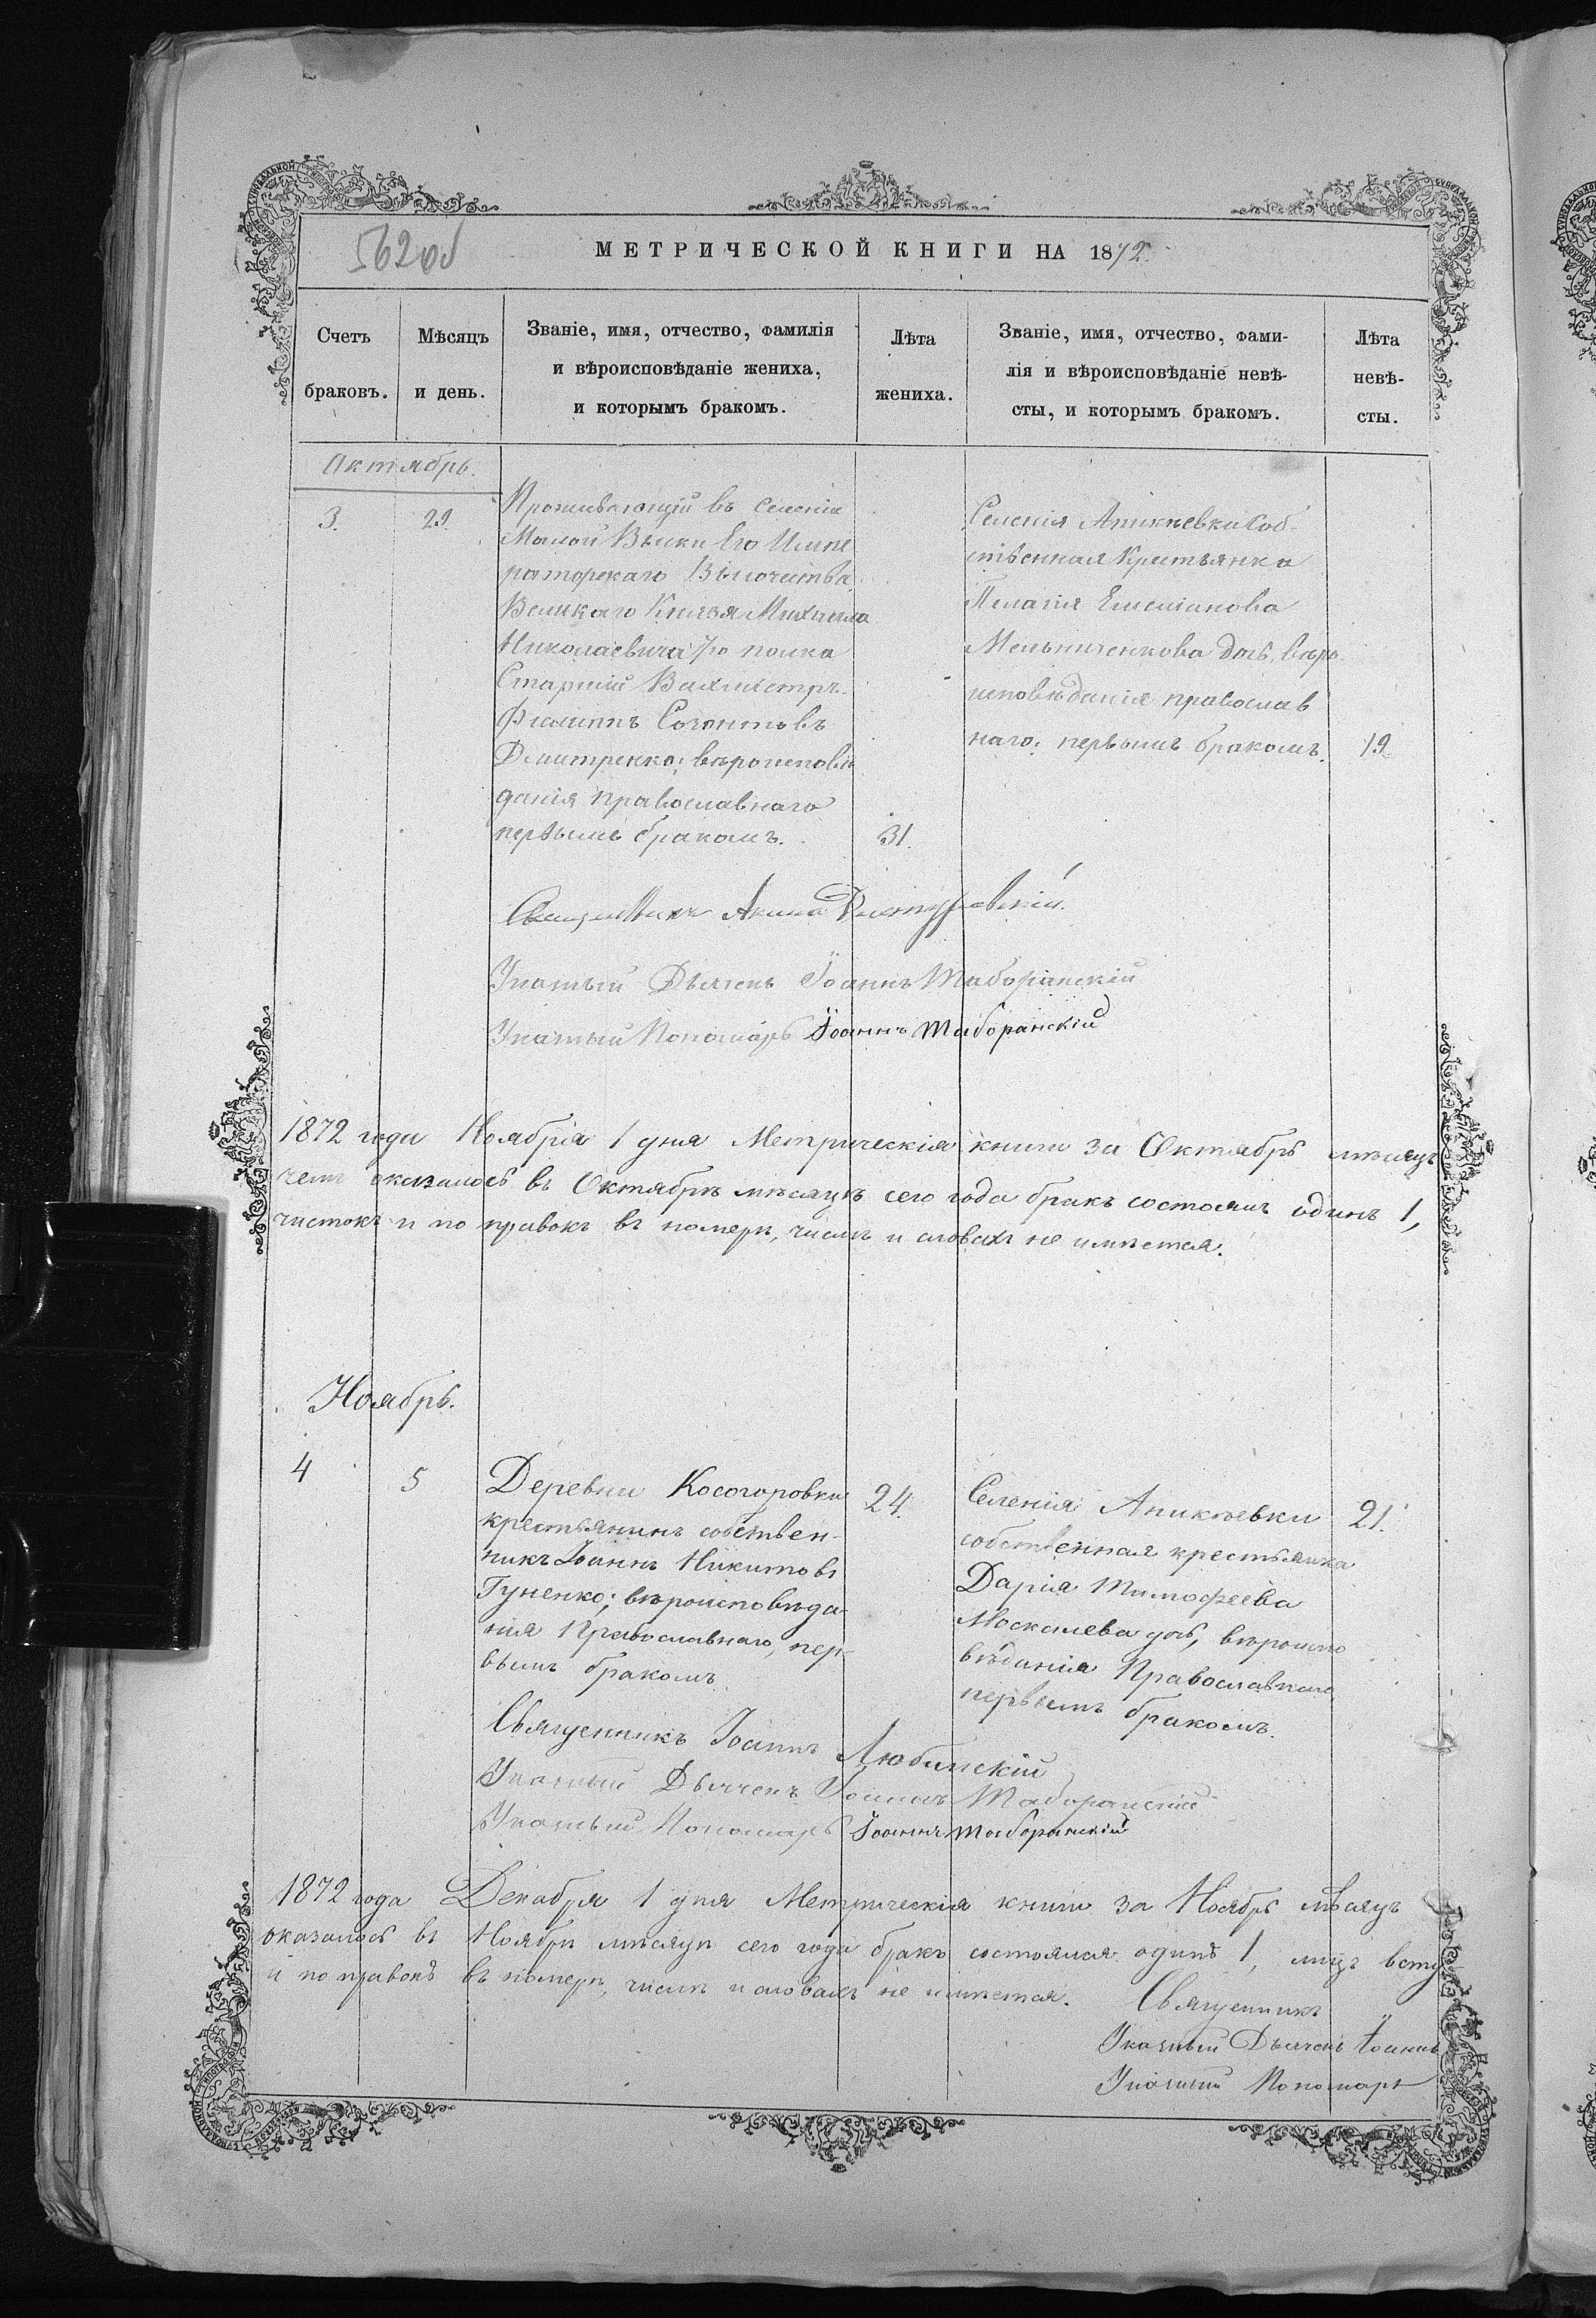 562 об
МЕТРИЧЕСКОЙ КНИГИ НА 1872
Счетъ браковъ.
Мѣсяцъ и день.
Званіе, имя, отчество, фамилія
и вѣроисповѣданіе жениха,
и которымъ бракомъ.
Лѣта жениха.
Званіе, имя, отчество, фами-
лія и вѣроисповѣданіе невѣ-
сты, и которымъ бракомъ.
Лѣта невѣ-
сты.
Октябрь.
3.
29.
Проживающій въ селеніи
Малой Выски Его Импе
раторскаго Высочества
Великаго Князя Михаила
Николаевича 7го полка
Старшій Вахмистръ
Филиппъ
Дмитренко; вѣроисповѣ
данія православнаго
первымъ бракомъ.
31.
Селенія Аникѣевки Соб-
ственная Крестьянка
Пелагія Емеліанова
Мельниченкова дочь, вѣро
исповѣданія православ
наго: первымъ бракомъ.
19.
Священникъ
Указный Дьячекъ Іоаннъ Таборанскій
Указный Пономарь Іоаннъ Таборанскій
1872 года Ноября 1 дня Метрическія книги за Октябрь мѣсяцъ
чемъ оказалось въ Октябрѣ мѣсяцѣ сего года бракъ состоялся одинъ 1,
чистокъ и по правокъ въ номерѣ, числѣ и словахъ не имѣется.
Ноябрь.
4
5
Деревни Косогоровки
крестьянинъ собствен-
никъ Іоаннъ Никитовъ
Гуненко; вѣроисповѣда-
нія Православнаго, пер-
вымъ бракомъ
24.
Селенія Аникѣевки
собственная крестьянка
Дарія Тимофеева
Москалева дочь, вѣроиспо
вѣданія Православнаго
первымъ бракомъ.
21.
Священникъ Іоаннъ Любинскій
Указный Дьячекъ Іоаннъ Таборанскій
Указный Пономарь Іоаннъ Таборанскій
1872 года Декабря 1 дня Метрическія книги за Ноябрь мѣсяцъ
оказалось въ Ноябрѣ мѣсяцѣ сего года бракъ состоялся одинъ 1, лицъ всту
и по правокъ въ номерѣ, числѣ и словахъ не имѣется.
Священникъ
Указный Дьячекъ Іоаннъ
Указный Пономарь